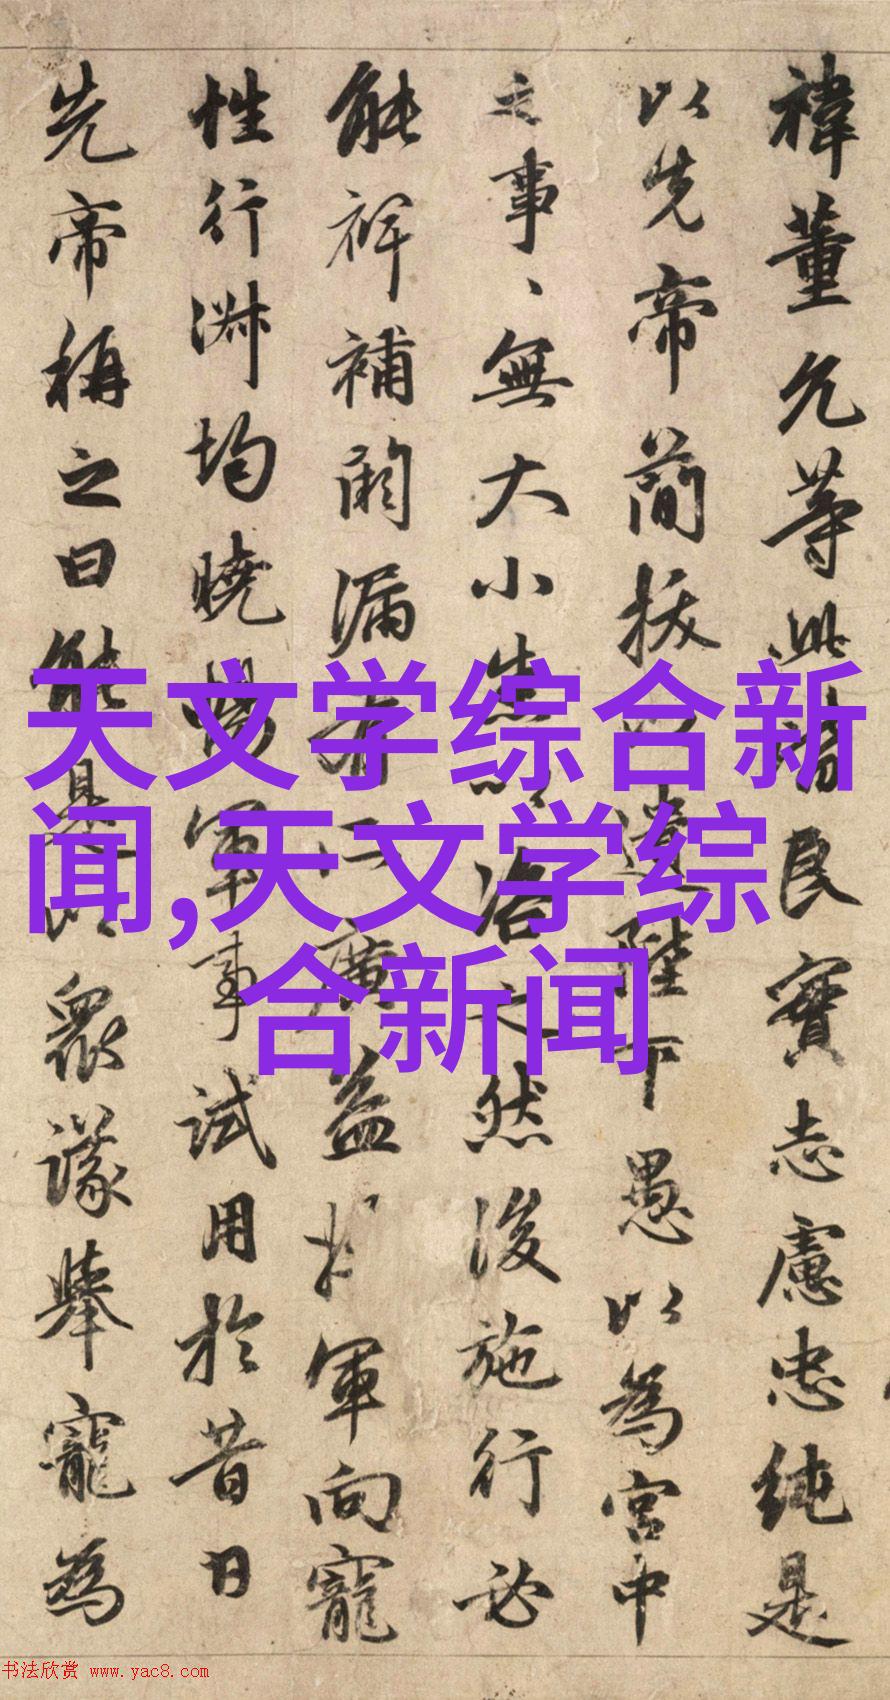 禕董允等此皆良實志慮忠純是
以先帝簡拔以遺陛下愚以為宮中
之事、無大小悉以咨之然後施行必
能裨補闕漏有所廣益將軍向寵
性行淋均曉暢軍事試用於昔日
先帝稱之曰能是以眾議舉寵為
天文学综合新
闻,天文学综
合新闻
书法欣赏 www.yac8.com